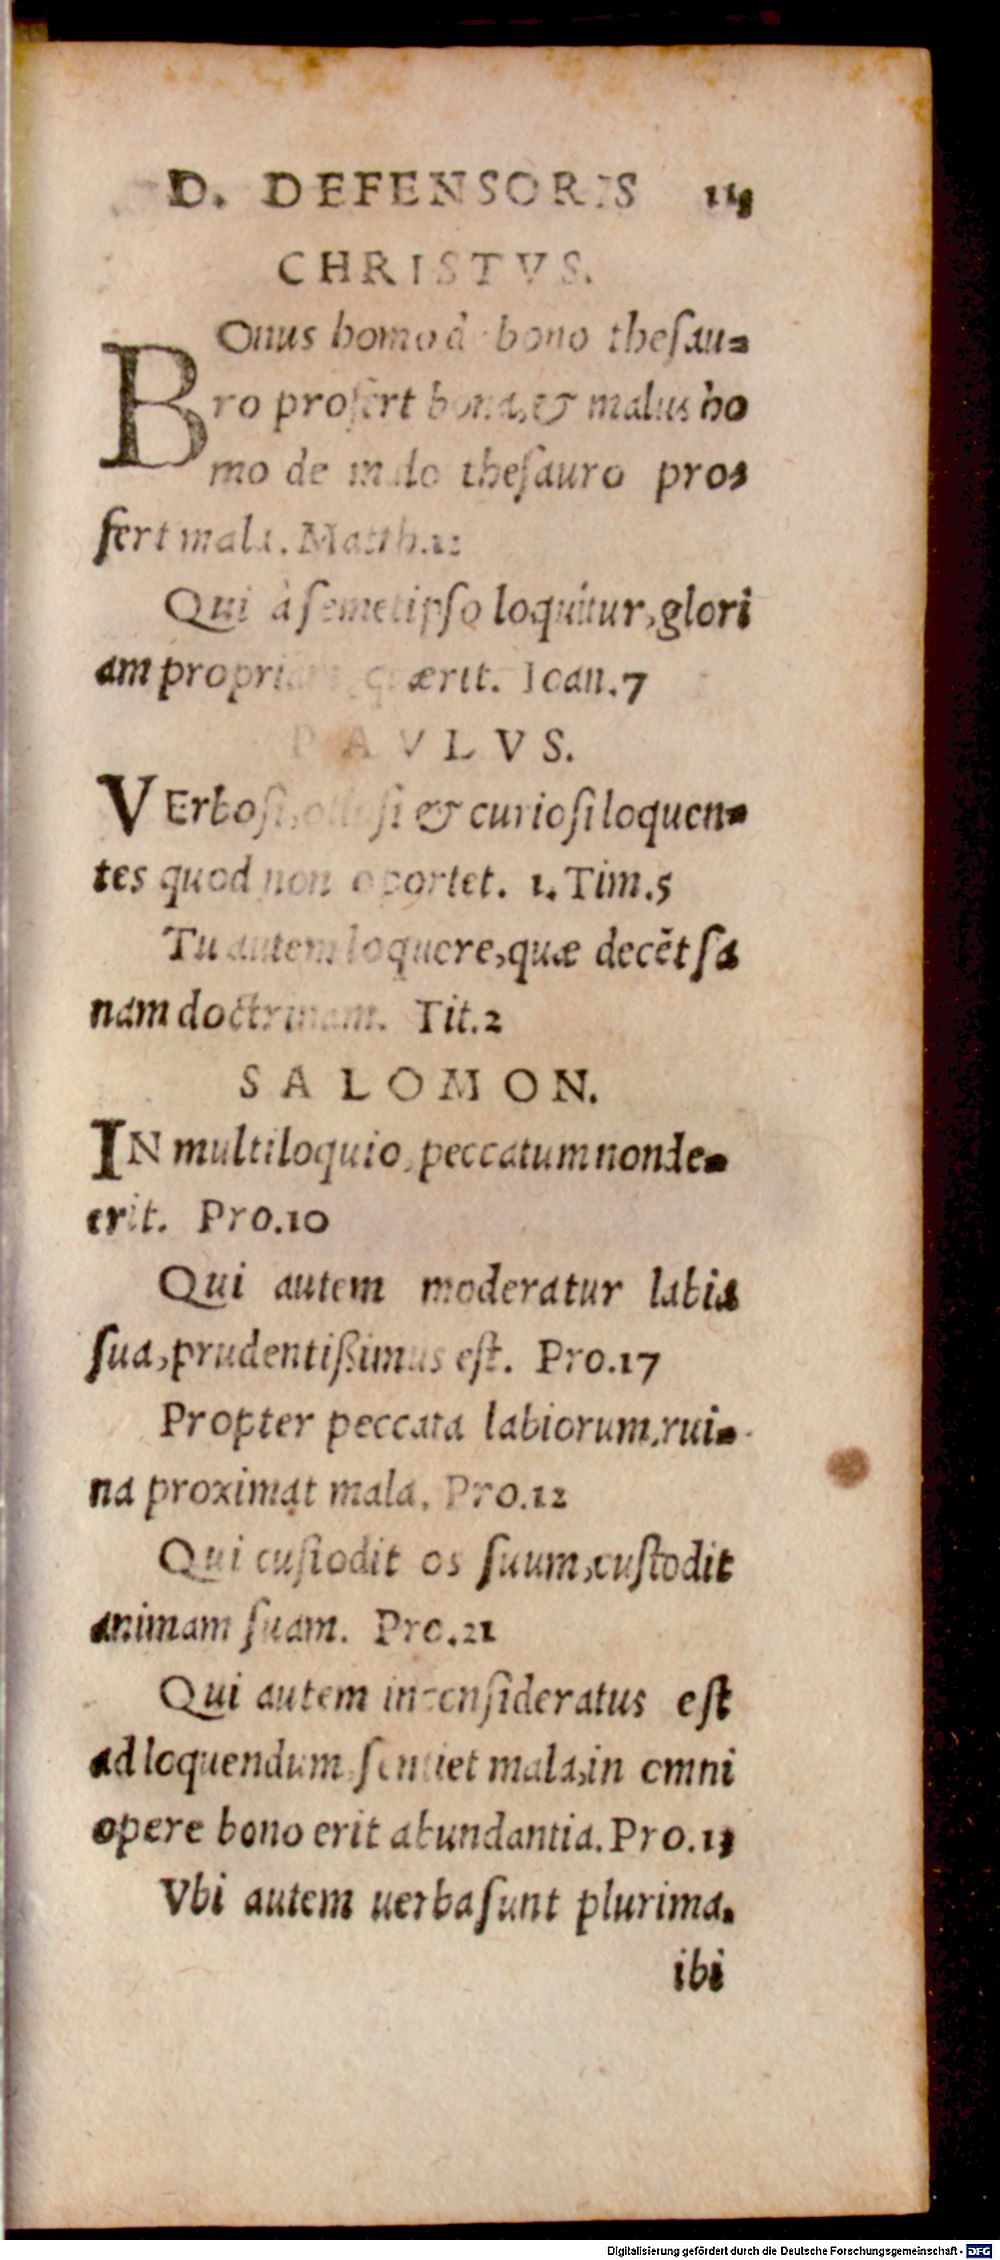 D. DEFENSORIS
CHRISTVS.
BOnus homo de bono thesau-
ro profert bona,& malus ho
mo de malo thesauro pro-
fert mala. Matth.12
Qui à semetipso loquitur,glori
am propriam quærit. Ioan.7
PAVLVS.
VErbosi,otiosi & curiosi loquen-
tes quod non oportet. 1. Tim.5
Tu autem loquere,quæ decẽt sa
nam doctrinam. Tit.2
SALOMON.
IN multiloquio,peccatum non de-
erit. Pro.10
Qui autem moderatur labia
sua,prudentißimus est. Pro.17
Propter peccata labiorum,rui-
na proximat mala. Pro.12
Qui custodit os suum,custodit
animam suam. Pro.21
Qui autem inconsideratus est
ad loquendum sentiet mala,in omni
opere bono erit abundantia. Pro.13
Vbi autem uerba sunt plurima.
ibi
Digitalisierung gefördert durch die Deutsche Forschungsgemeinschaft - DFG